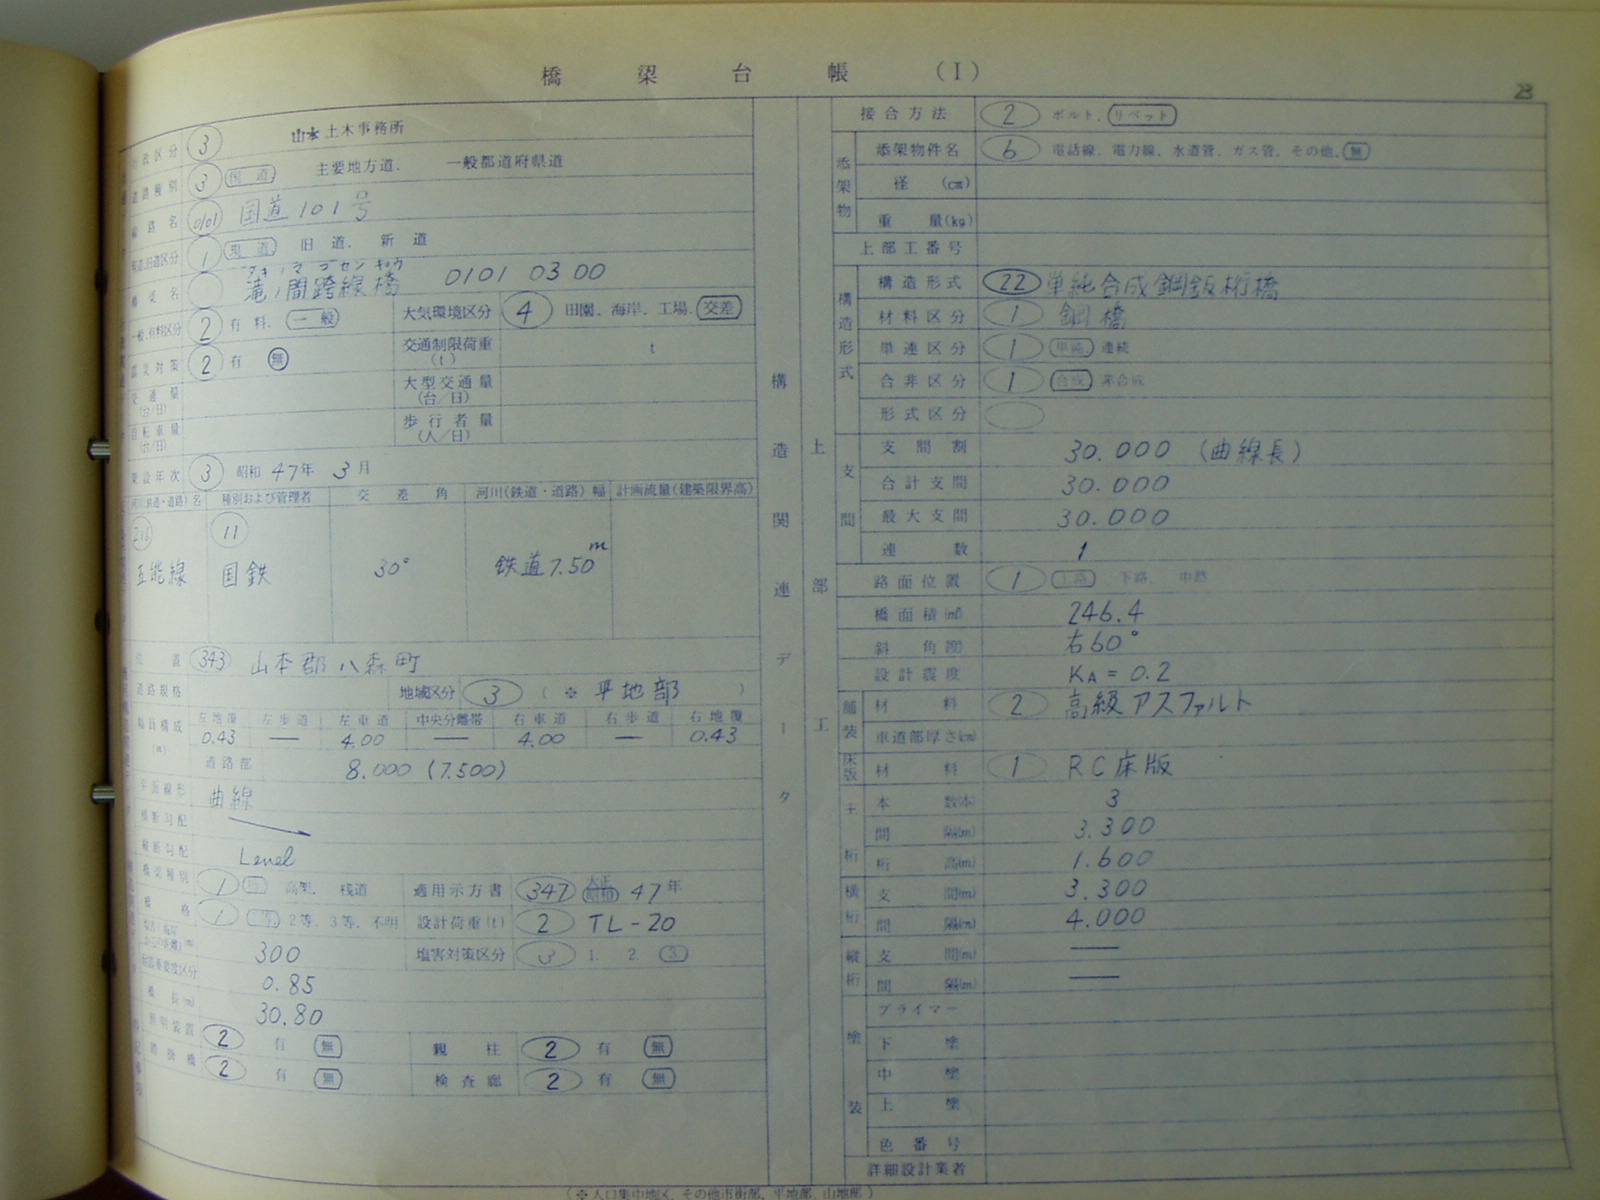 橋梁台帳 (I)
23
行政区分 3 山本土木事務所
道路種別 3 国道 主要地方道. 一般都道府県道
路線名 0101 国道101号
現道旧道区分 1 現道 旧道. 新道
タキノマコセンキョウ
橋梁名 滝ノ間跨線橋 0101 0300
一般有料区分 2 有料. 一般 大気環境区分 4 田園. 海岸. 工場. 交差
震災対策 2 有 無 交通制限荷重(t) t
交通量(台/日) 大型交通量(台/日)
自転車量(台/日) 歩行者量(人/日)
架設年次 3 昭和 47年 3月
河川(鉄道・道路)名 種別および管理者 交差角 河川(鉄道・道路)幅 計画流量(建築限界高)
11
五能線 国鉄 30° 鉄道7.50m
位置 343 山本郡八森町
道路規格 地域区分 3 (※ 平地部 )
幅員構成(m) 左地覆 左歩道 左車道 中央分離帯 右車道 右歩道 右地覆
0.43 — 4.00 — 4.00 — 0.43
道路部 8.000 (7.500)
平面線形 曲線
横断勾配
縦断勾配 Level
橋梁種別 1 橋 高架. 桟道 適用示方書 347 大正 昭和 47年
橋格 1 1等 2等. 3等. 不明 設計荷重(t) 2 TL-20
300 塩害対策区分 3 1. 2. 3
0.85
橋長(m) 30.80
照明装置 2 有 無 親柱 2 有 無
2 有 無 検査廊 2 有 無
構造関連データ
上部工
接合方法 2 ボルト. リベット
添架物
添架物件名 6 電話線. 電力線. 水道管. ガス管. その他. 無
径 (cm)
重量(kg)
上部工番号
構造形式
構造形式 22 単純合成鋼鈑桁橋
材料区分 1 鋼橋
単連区分 1 単純. 連続
合非区分 1 合成 非合成
形式区分
支間
支間割 30.000 (曲線長)
合計支間 30.000
最大支間 30.000
連数 1
路面位置 1 上路 下路. 中路
橋面積(㎡) 246.4
斜角(度) 右60°
設計震度 KA = 0.2
舗装 材料 2 高級アスファルト
車道部厚さ(cm)
床版 材料 1 RC床版
主桁
本数(本) 3
間隔(m) 3.300
桁高(m) 1.600
横桁
支間(m) 3.300
間隔(m) 4.000
縦桁
支間(m) —
間隔(m) —
塗装
プライマー
下塗
中塗
上塗
色番号
詳細設計業者
(※人口集中地区, その他市街部, 平地部, 山地部)